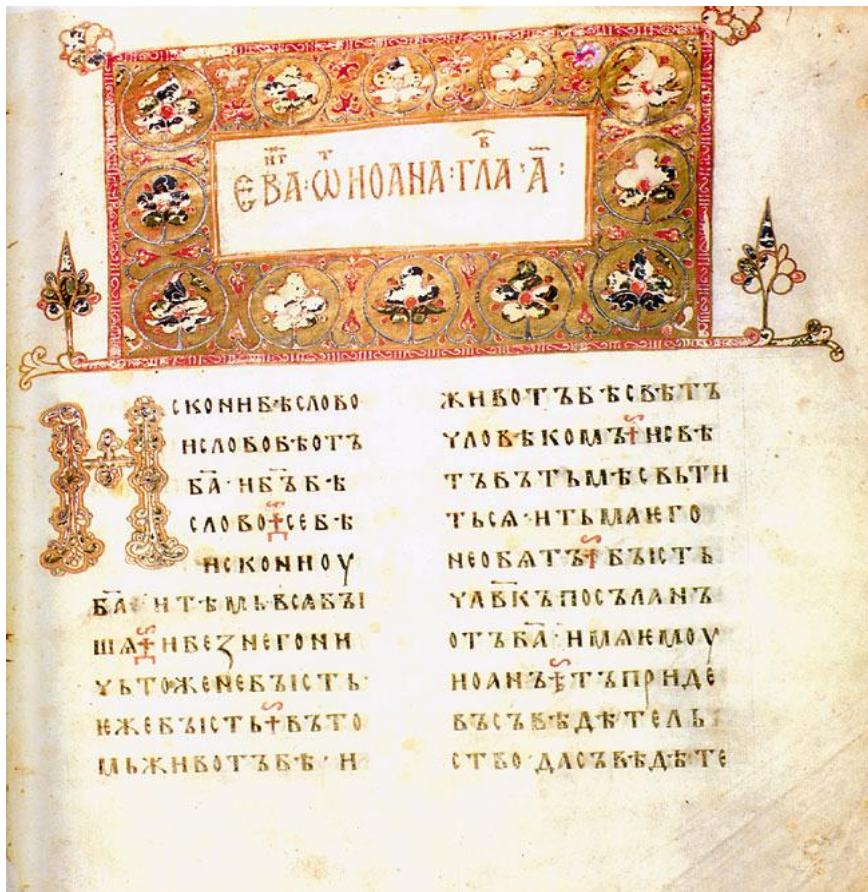 ЕВА҃·ѾИОАНА·ГЛА҃·А҃:
СКОНИБѢСЛОВО
ИСЛОВОБѢОТЪ
БА҃·ИБЪ҃БѢ
СЛОВО·СЕБѢ
ИСКОНИОУ
БА҃·ИТѢМЬВСѦБЪІ
ШѦ·ИБЕЗНЕГОНИ
ЧЬТОЖЕНЕБЪІСТЬ·
ѤЖЕБЪІСТЬ·ВЪТО
МЬЖИВОТЪБѢ·И
ЖИВОТЪБѢСВѢТЪ
ЧЛОВѢКОМЪ·ИСВѢ
ТЪВЪТЬМѢСВЬТИ
ТЬСѦ·ИТЬМАѤГО
НЕОБѦТЪ·БЪІСТЬ
ЧЛВ҃КЪПОСЪЛАНЪ
ОТЪБА҃·ИМѦѤМОУ
ИОАНЪ·ТЪПРИДЕ
ВЪСЪВѢДѢТЕЛЬ
СТВО·ДАСЪВѢДѢТЕ